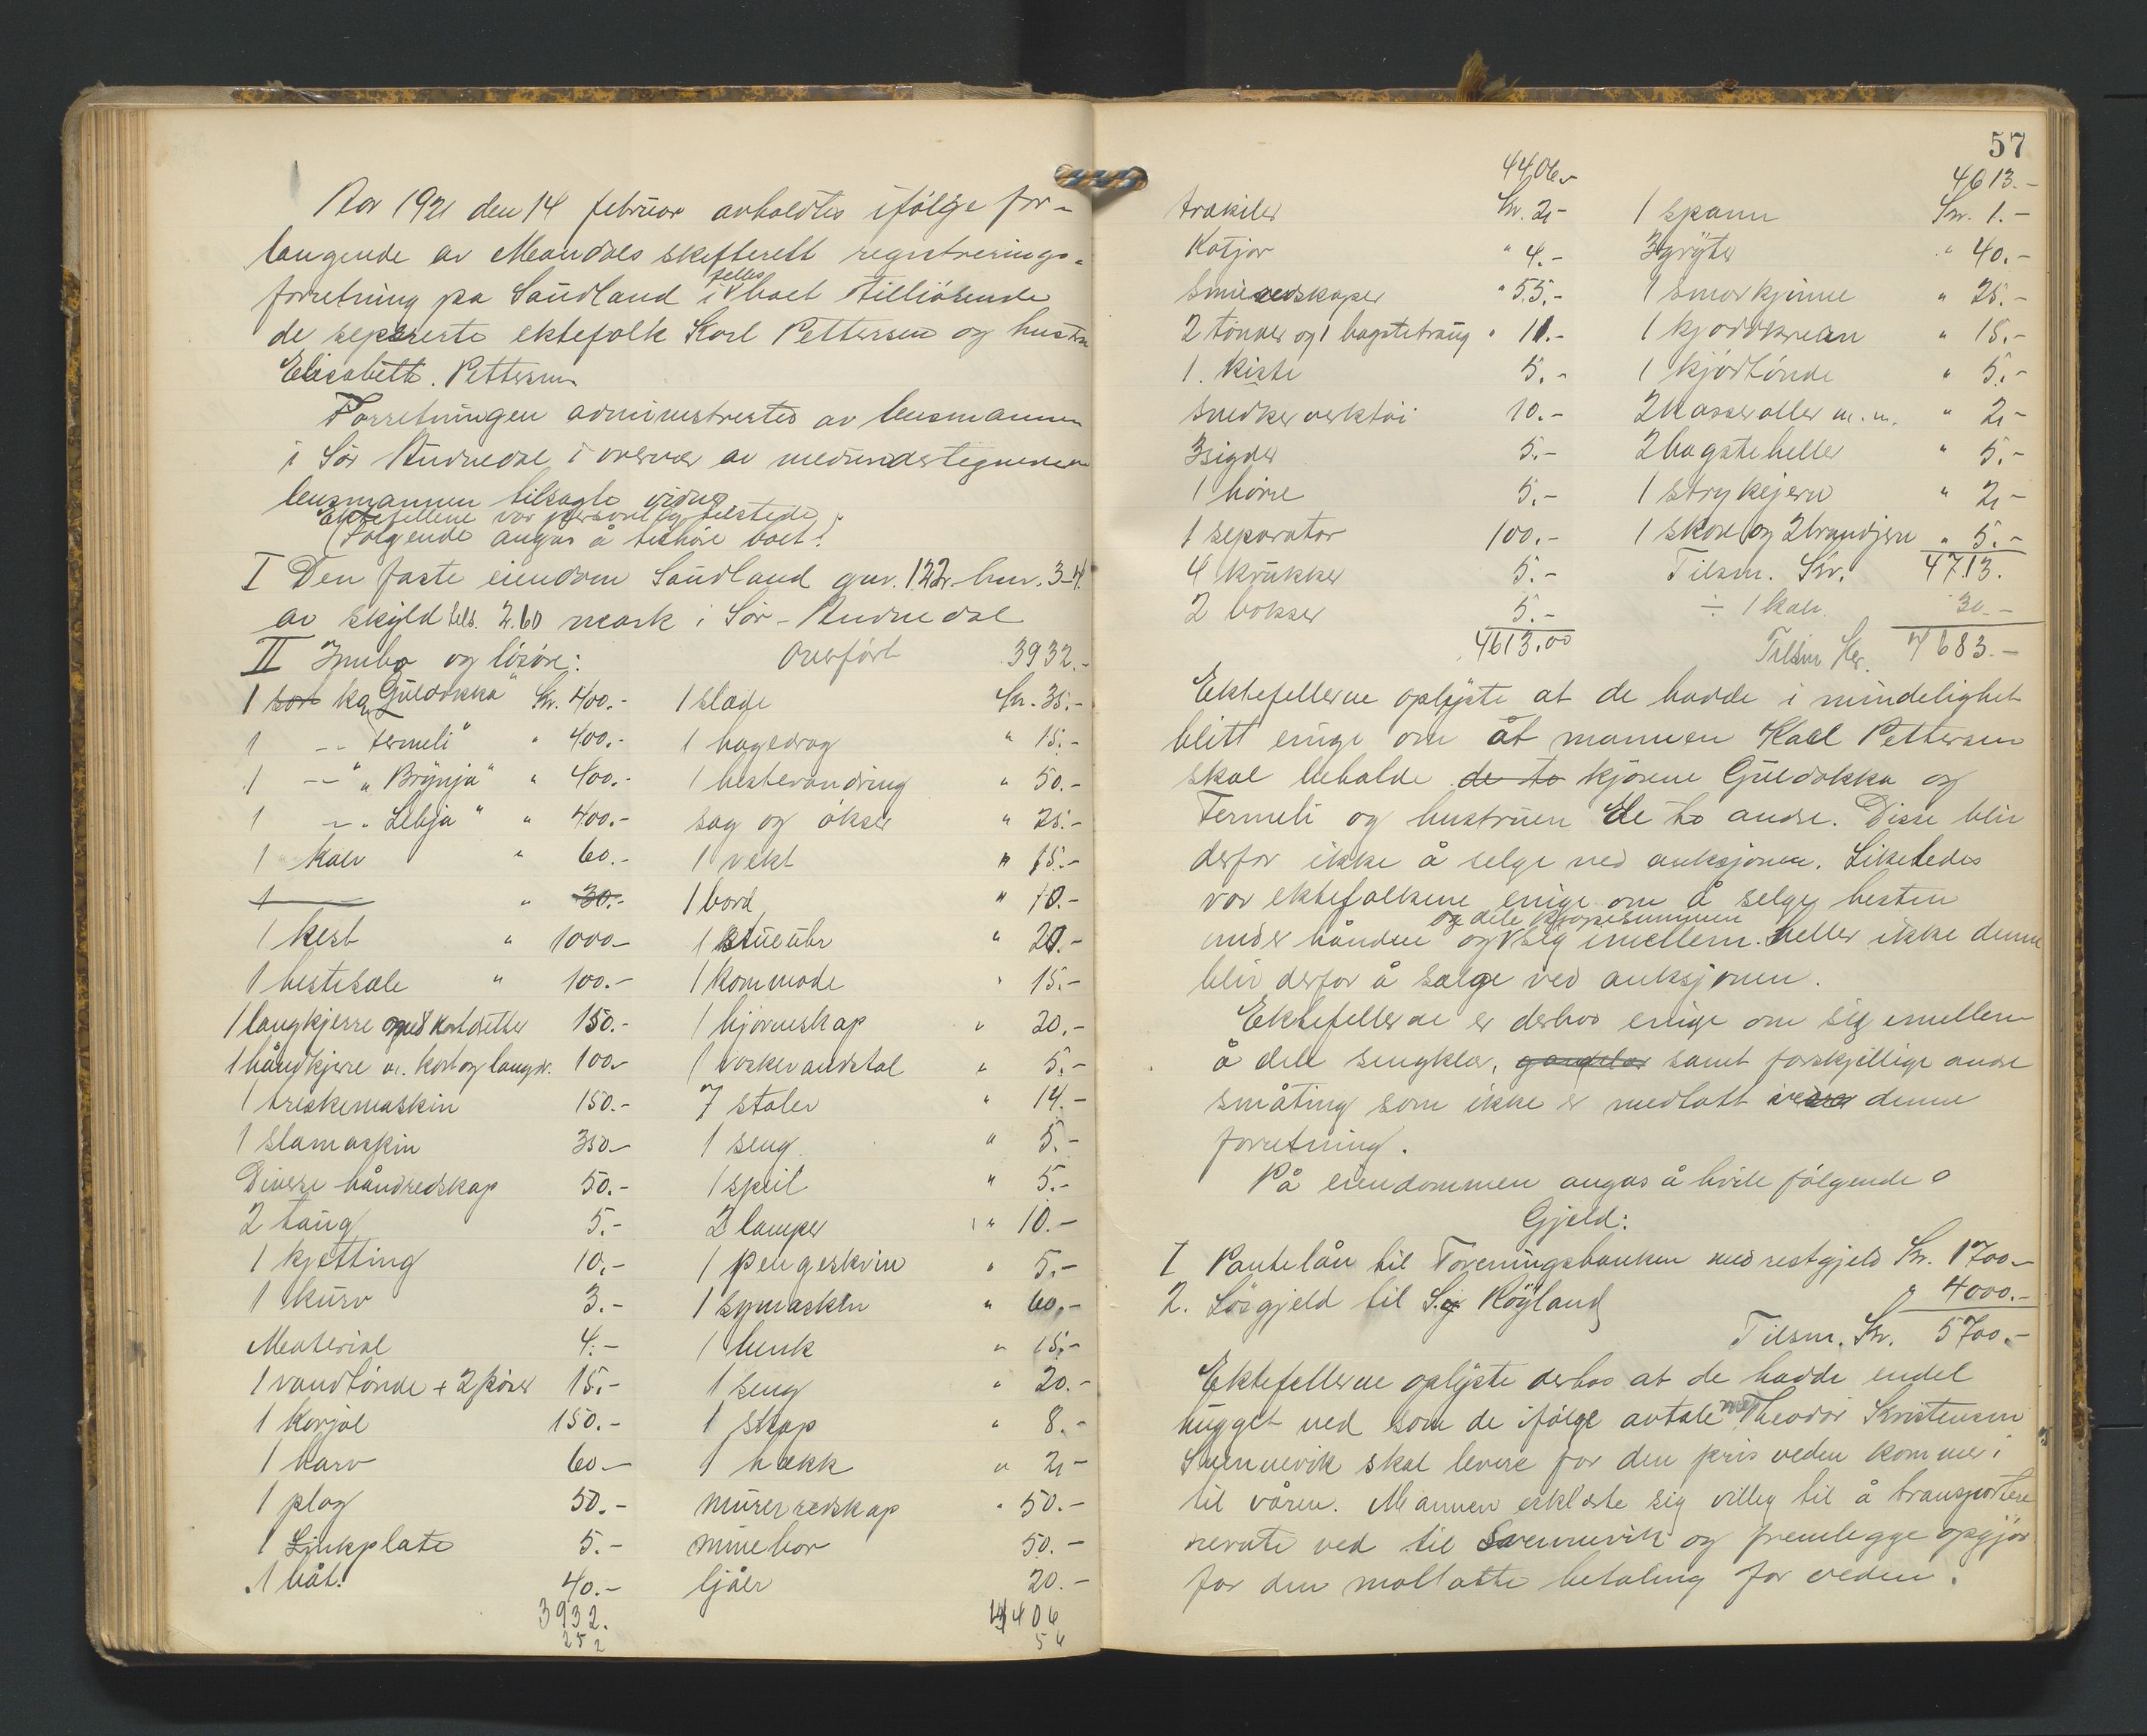 Aar 1921 den 14 februar avholdtes ifølge for-
langende av Mandals skifterett registrerings-
forretning på Saudland i felles boet tilhørende
de separerte ektefolk Karl Pettersen og hustru
Elisabeth Pettersen
Forretningen administrertes av lensmannen
i Sør Audnedal i overvær av medundertegnede av
lensmannen tilsagte vidner
Ektefellene var personlig tilstede.
Følgende angas å tilhøre boet:
I Den faste eiendom Saudland gnr. 122 bnr. 3-4
av skyld tils. 2.60 mark i Sør-Audnedal
II Innbo og løsøre:
1 ku "Guldokka" Kr. 400.-
1 -- "Fermeli" " 400.-
1 -- " Brynja " " 400.-
1 -- " Libja " " 400.-
1 kalv " 60.-
1 " 30.-
1 hest " 1000-
1 hestesæle " 100.-
1 langkjerre 150.-
1 håndkjerre m. kort og langdr. 100-
1 treskemaskin 150.-
1 slamaskin 350-
Diverse håndredskap 50.-
2 taug 5.-
1 kjetting 10.-
1 kurv 3.-
Material 4.-
1 vandtønde + 2 pøser 15.-
1 Karjol 150.-
1 harv 60-
1 plog 50.-
1 Zinkplate 5.-
1 båt 40.-
3932.
252
Overført 3932.-
1 slæde Kr. 35.-
1 hogedrag " 15.-
1 hestevandring " 50.-
sag og økser " 25.-
1 vekt " 15.-
1 bord " 10.-
1 stueuhr " 20.-
1 kommode " 15.-
1 hjørneskap " 20.-
1 vaskevandstol " 5.-
7 stoler " 14.-
1 seng " 5.-
1 speil " 5.-
2 lamper " 10.-
1 pengeskrin " 5.-
1 symaskin " 60.-
1 benk " 15.-
1 seng " 20.-
1 skap " 8.-
1 hækk " 2.-
murerredskap " 50.-
minebor 50.-
ljåer 20.-
4406
54
57
4406.-
trækiler Kr. 2.-
Katjor " 4.-
smieredskaper " 55.-
2 tønder og 1 bagstetraug " 11.-
1 kiste 5.-
snedkerverktøi 10.-
3 sigder 5.-
1 børse 5.-
1 separator 100.-
4 krukker 5.-
2 bokser 5.-
4613.00
4613.-
1 spann Kr. 1.-
3 gryter " 40.-
1 smørkjinne " 25.-
1 kjødkvern " 15.-
1 kjødtønde " 5.-
2 kasseroller m.m. " 2.-
2 bagsteheller " 5.-
1 strykejern " 2.-
1 skoe og 2 brandjern " 5.-
Tilsm. Kr. 4713.
÷ 1 kalv. 30.-
Tilsm Kr. 4683.-
Ektefellerne oplyste at de hadde i mindelighet
blitt enige om at mannen Karl Pettersen
skal beholde de to kjørene Guldokka og
Fermeli og hustruen de to andre. Disse blir
derfor ikke å selge ved auksjonen. Likeledes
var ektefolkene enige om å selge hesten
under hånden og og dele kjøpesummen sig imellem. Heller ikke denne
blir derfor å sælge ved auksjonen.
Ektefellerne er derhos enige om sig emellem
å dele sengklær, gangklær samt forskjellige andre
småting som ikke er medtatt i denne
forretning.
På eiendommen angas å hvile følgende
Gjeld:
1 Pantelån til Foreningsbanken med restgjeld Kr. 1700.-
2. Løsgjeld til Sig Røyland " 4000.-
Tilsm. Kr. 5700.-
Ektefellerne oplyste derhos at de hadde endel
hugget ved som de ifølge avtale med Theodor Kristensen
Svennevik skal levere for den pris veden kommer i
til våren. Mannen erklærte sig villig til å transportere
nevnte ved til Svennevik og fremlegge opgjør
for den mottatte betaling for veden.